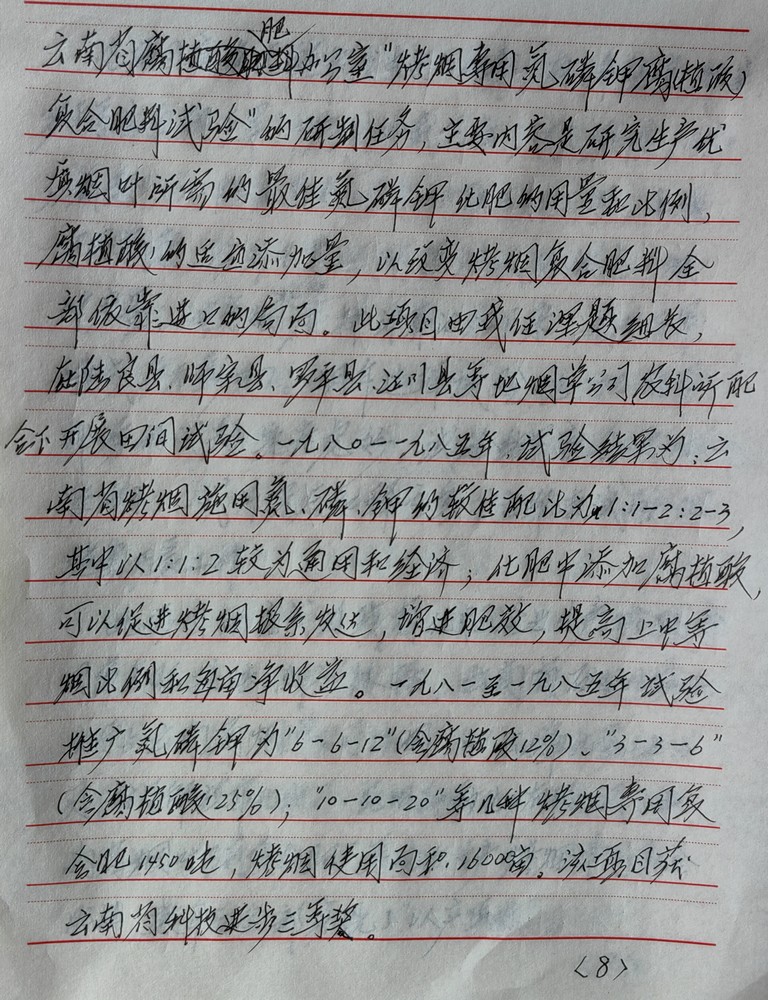 肥
云南省腐植酸肥料办公室"烤烟专用氮磷钾腐(植酸)
复合肥料试验"的研制任务,主要内容是研究生产优
质烟叶所需的最佳氮磷钾化肥的用量和比例,
腐植酸的适宜添加量,以改变烤烟复合肥料全
部依靠进口的局面。此项目由我任课题组长,
在陆良县、师宗县、罗平县、江川县等地烟草公司农科所配
合下开展田间试验。一九八〇—一九八五年,试验结果为:云
南省烤烟施用氮、磷、钾的较佳配比为1:1-2:2-3,
其中以1:1:2较为通用和经济;化肥中添加腐植酸,
可以促进烤烟根系发达,增进肥效,提高上中等
烟比例和每亩净收益。一九八一至一九八五年试验
推广氮磷钾为"6-6-12"(含腐植酸12%)、"3-3-6"
(含腐植酸25%);"10-10-20"等几种烤烟专用复
合肥1450吨,烤烟使用面积16000亩。该项目获
云南省科技进步三等奖。
<8>